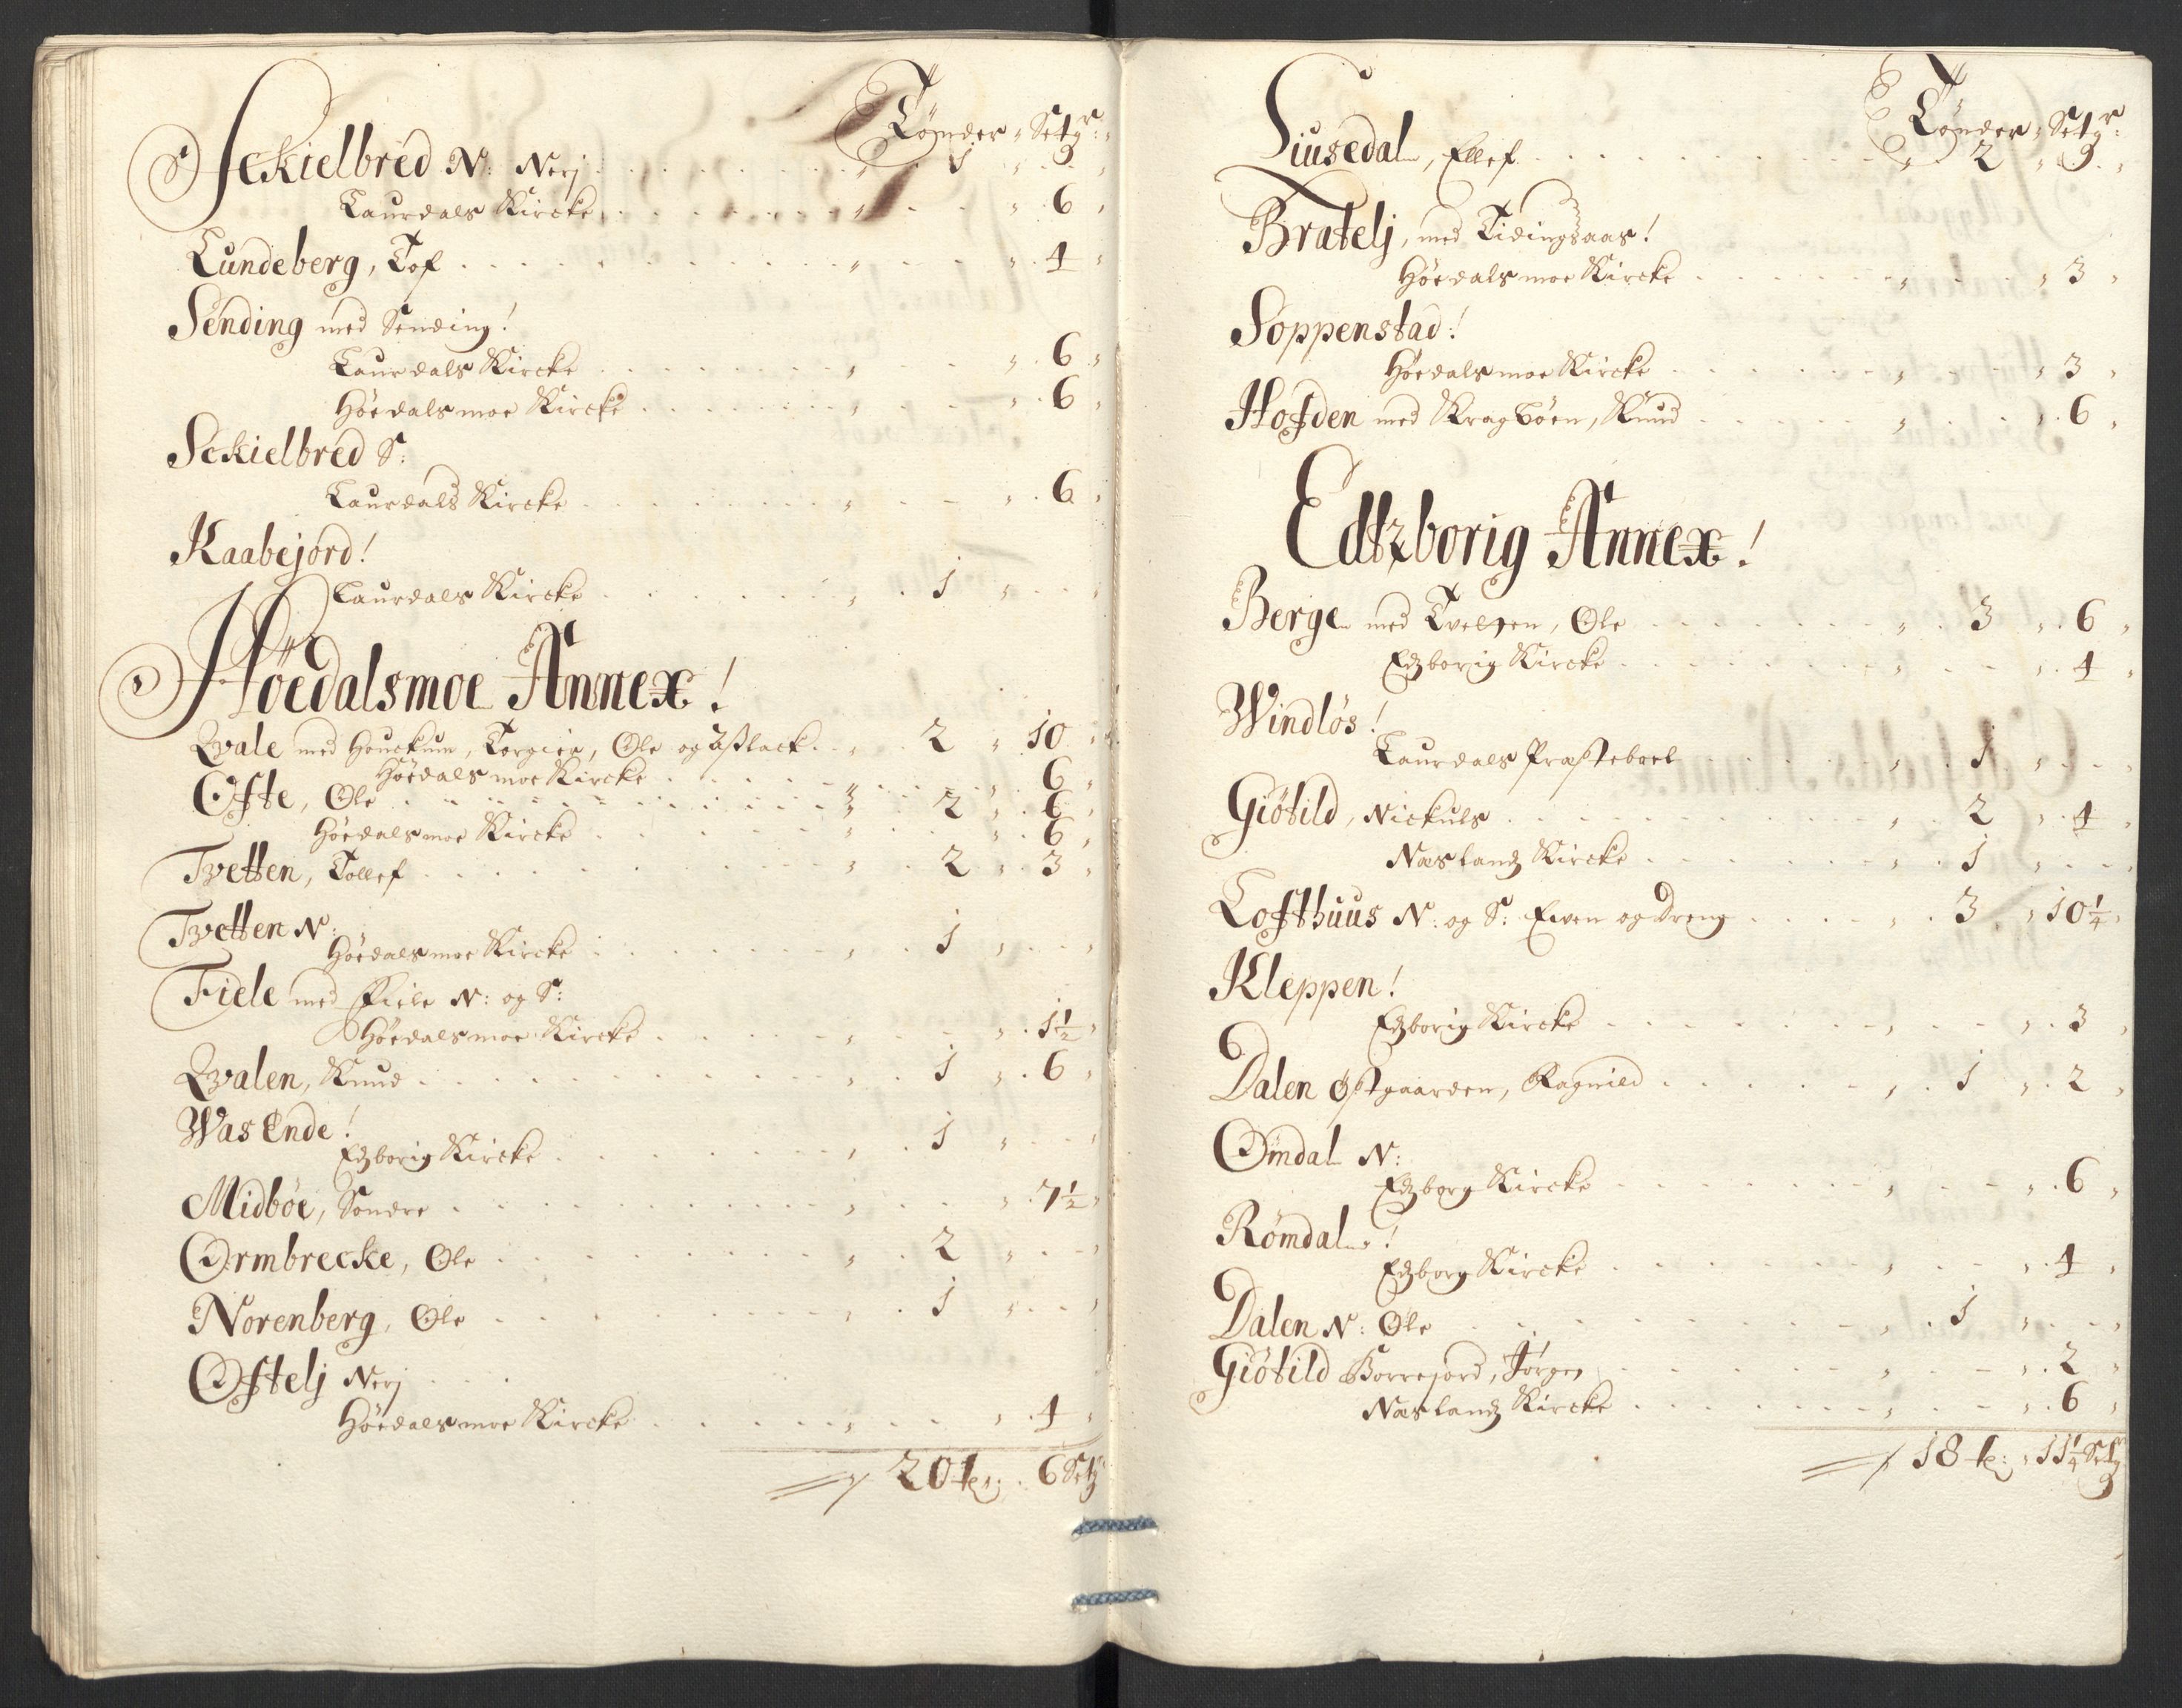 Tønder Setgr:
Sckielbred N: Nerj 1
Laurdals Kircke 6
Lundeberg, Tof 4
Sending med Sending!
Laurdals Kircke 6
Höedalsmoe Kircke 6
Sckielbred S:
Laurdals Kircke 6
Kaabejord!
Laurdals Kircke 1
Höedalsmoe Annex!
Qvale med Houckum, Torgier, Ole og Aßlack 2 10
Höedals moe Kircke 6
Ofte, Ole 2 6
Höedalsmoe Kircke 6
Tvetten, Tollef 2 3
Tvetten N:
Höedalsmoe Kircke 1
Fiele med Fiele N: og S:
Höedalsmoe Kircke 1½
Qvalen, Knud 1 6
Was Ende!
Edzborig Kircke 1
Midböe, Söndre 7½
Ormbrecke, Ole 2
Norenberg, Ole 1
Oftelj Nerj
Höedalsmoe Kircke 4
20 tr: 6 Setgr
Tønder Setgr:
Liusedal, Ellef 2 9
Bratelj, med Tidingsaas!
Höedalsmoe Kircke 3
Soppenstad!
Höedalsmoe Kircke 3
Hofden med Kragböen, Knud 6
Edtzborig Annex!
Berge med Tveten, Ole 3 6
Edzborig Kircke 4
Windlös!
Laurdals Præsteboel 1
Giötild, Nickuls 2 4
Næslandz Kircke 1
Lofthuus N: og S: Even og Dreng 3 10¼
Kleppen!
Edzborig Kircke 3
Dalen Östgaarden, Ragnild 1 2
Omdal N:
Edzborg Kircke 6
Römdal!
Edzborg Kircke 4
Dalen N: Ole 1
Giötild Borrejord, Jörgen 2
Næslandz Kircke 6
18 tr: 11¼ Setgr